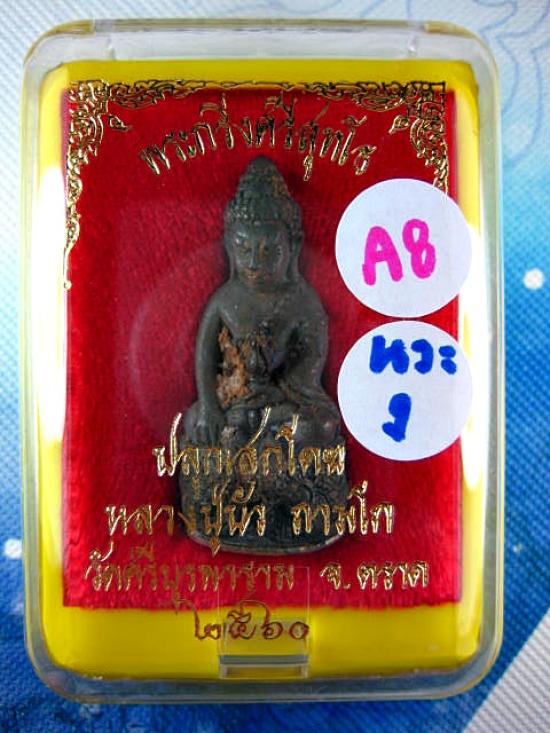 พระกริ่งศรีสุทโธ
A8
นวะ
ปลุกเสกโดย
หลวงปู่บัว ถามโก
วัดศรีบุรพาราม จ.ตราด
๒๕๖๐